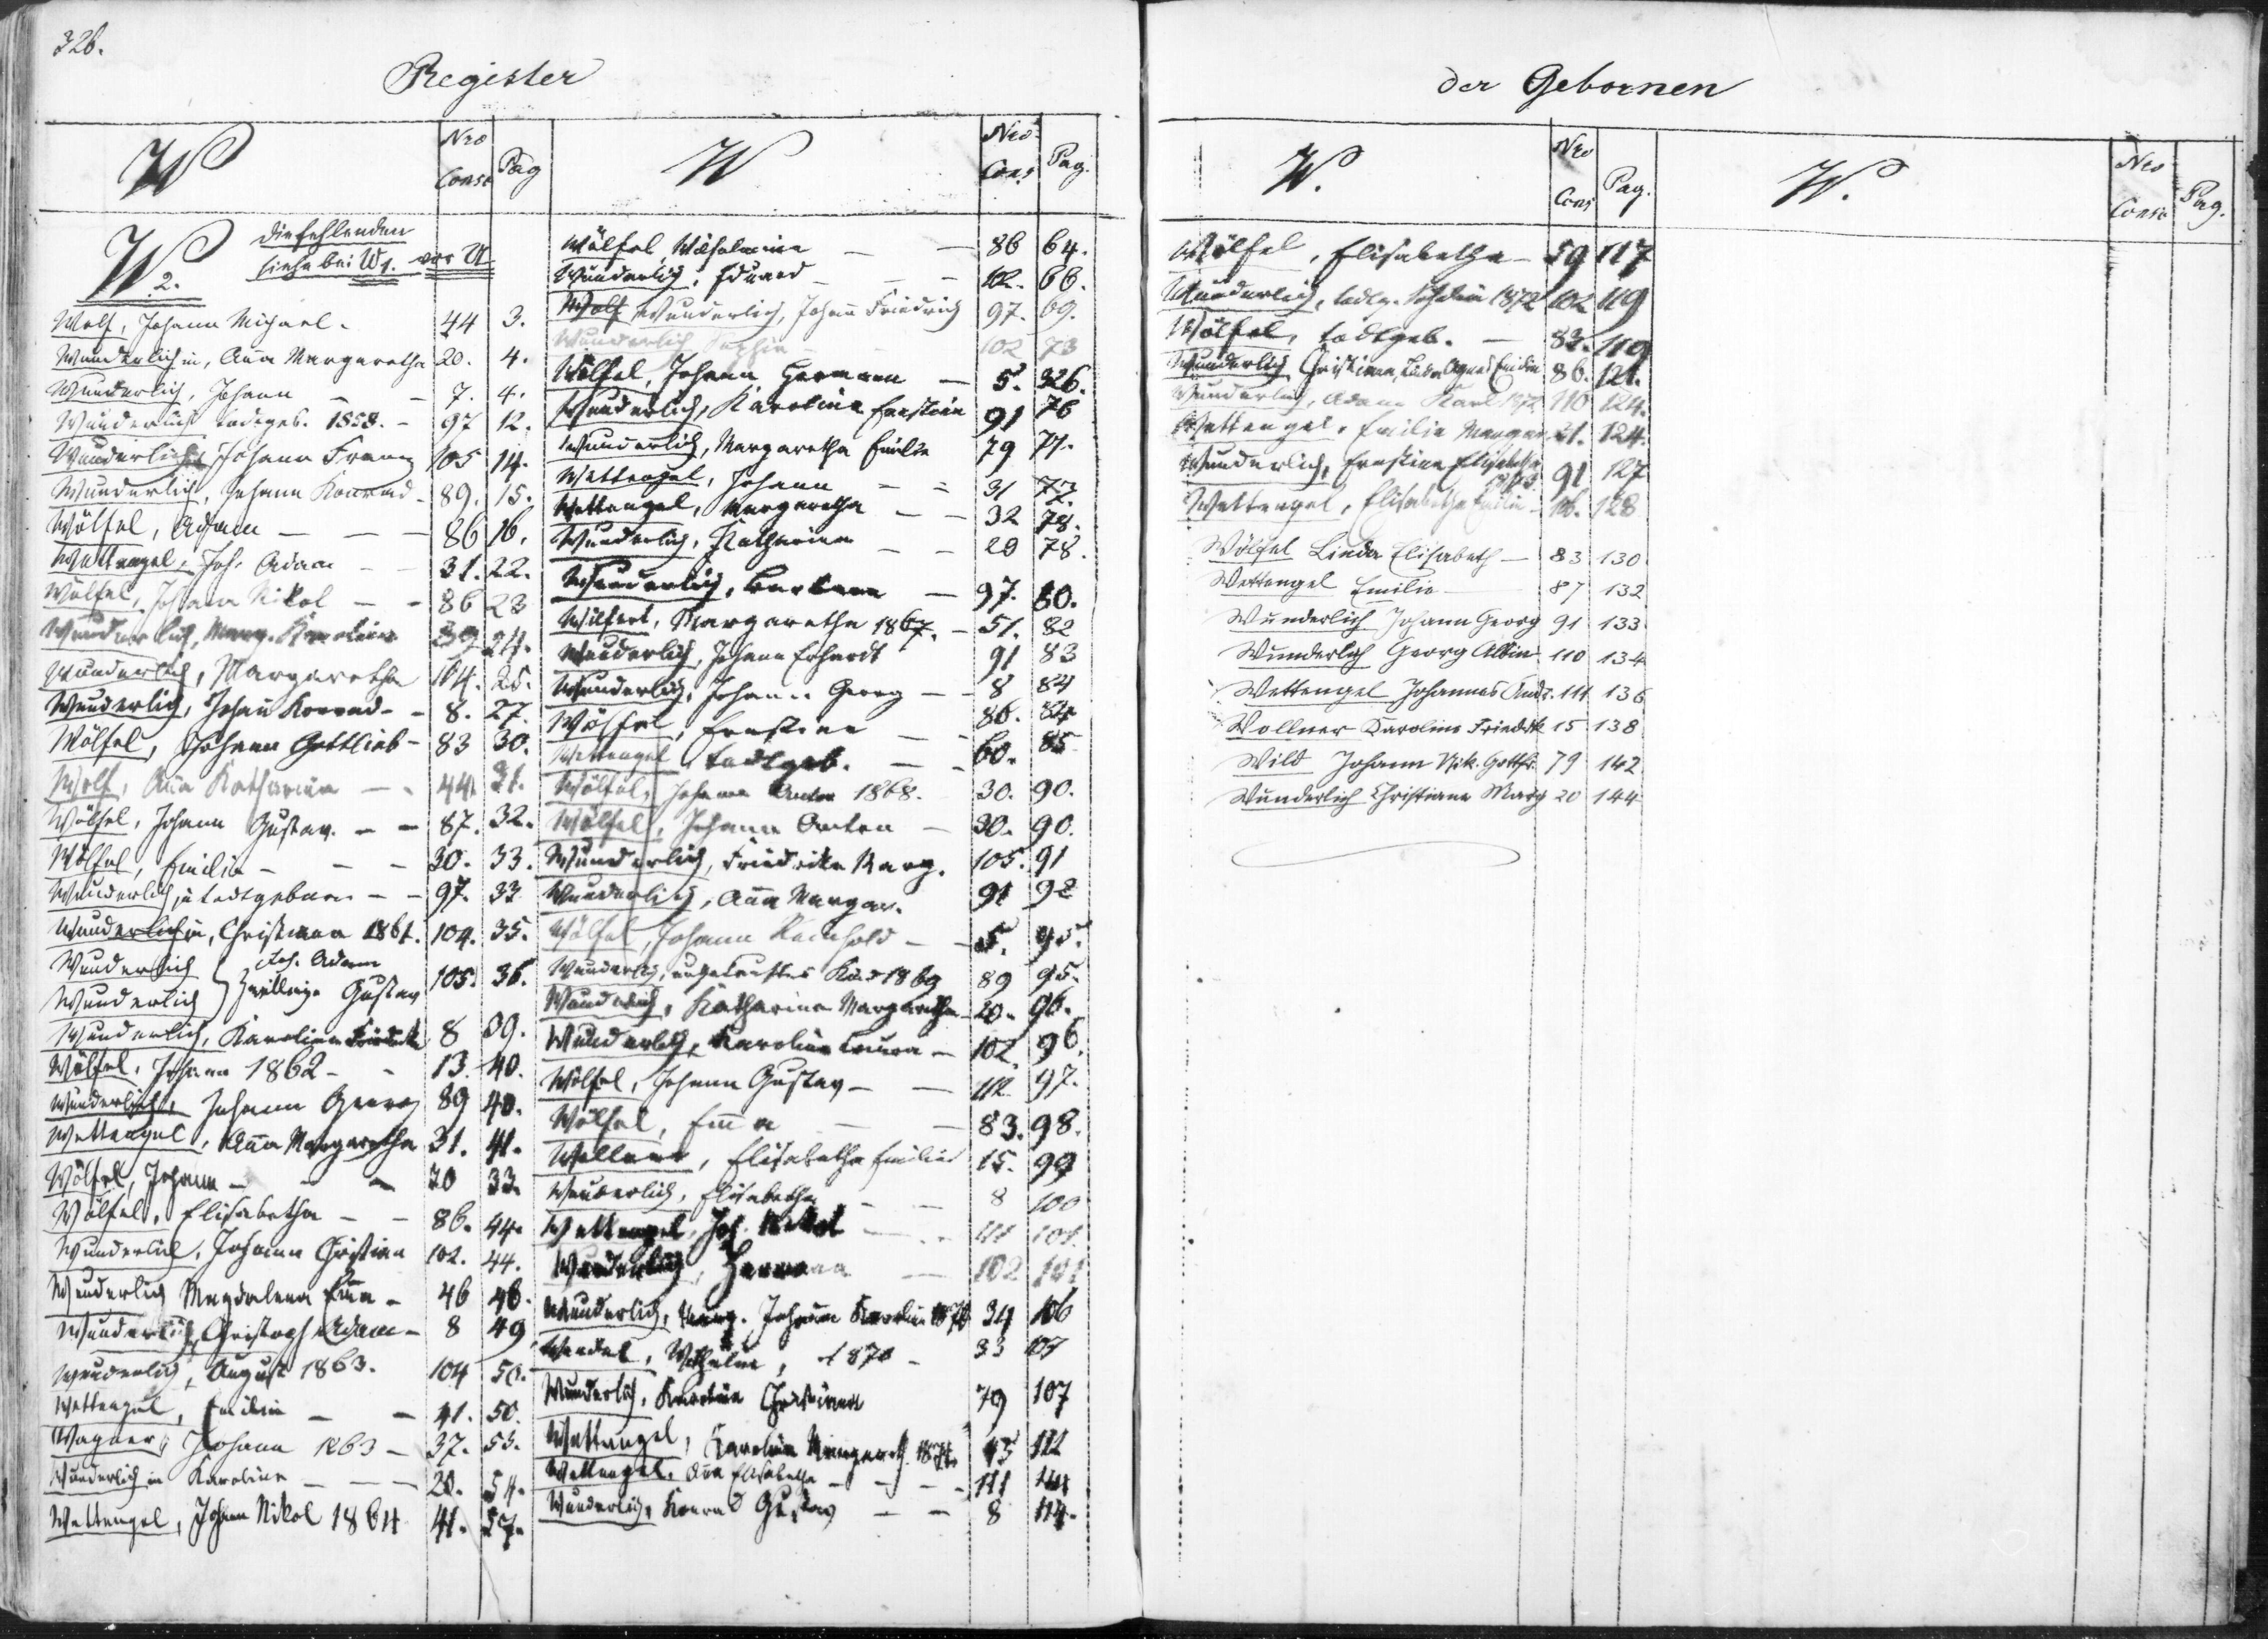 326.
Register
W
Nro Cons
Pag
W2.
die fehlenden
siehe bei W1. vor U
Wolf, Johann Michael. 44 3.
Wunderlichin, Anna Margaretha 20. 4.
Wunderlich, Johann - - 7. 4.
Wunderlich todtgeb. 1858. - 97 12.
Wunderlich, Johann Franz 105 14.
Wunderlich, Johann Konrad - 89. 15.
Wölfel, Adam - - - 86 16.
Wettengel, Joh. Adam - - 31. 22.
Wölfel, Johann Nikol - - 86 23
Wunderlich, Marg. Karoline 24.
Wunderlich, Margaretha 104. 25.
Wunderlich, Johann Konrad - - 8. 27.
Wölfel, Johann Gottlieb - 83 30.
Wolf, Anna Katharina - - 44. 31.
Wölfel, Johann Gustav. - - 87. 32.
Wölfel, Emilie - - - 30. 33.
Wunderlich, todtgeboren - - 97. 33
Wunderlichin, Christiana 1861. 104. 35.
Wunderlich } Joh. Adam
Wunderlich } Zwillinge Gustav 105. 36.
Wunderlich, Karoline Friedrike 8 39.
Wölfel, Johann 1862 - - 13. 40.
Wunderlich, Johann Georg 89 40.
Wettengel, Anna Margaretha 31. 41.
Wölfel, Johann - - - 30 33.
Wölfel, Elisabetha - - 86. 44.
Wunderlich, Johann Christian 102. 44.
Wunderlich Magdalena - 46 46.
Wunderlich, Christoph Adam - 8 49
Wunderlich, August 1863. 104 50.
Wettengel, Emilie - - 41. 50.
Wagner, Johann 1863 - 37. 53.
Wunderlichin Karoline - - - 20. 54.
Wettengel, Johann Nikol 1864 41. 57.
W
Nro Cons
Pag.
Wölfel, Wilhelmine - - 86 64.
Wunderlich, Eduard - - - 102. 66.
Wolf Wunderlich, Johann Friedrich 97. 69.
Wunderlich Sophie - 102 73
Wölfel, Johann Hermann - 5. 326.
Wunderlich, Karolina Ernstine 91 76
Wunderlich, Margaretha Emilie 79 77.
Wettengel, Johann - - 31 77.
Wettengel, Margaretha - - 32 78.
Wunderlich, Katharina - - 29 78.
Wunderlich, Barbara - 97. 80.
Wilfert, Margaretha 1867. - 51. 82
Wunderlich, Johann Erhardt 91 83
Wunderlich, Johann Georg - - 8 84
Wölfel, Ernstine - - 86. 84
Wettengel todtgeb. - - 60. 85
Wölfel, Johann Anton 1868. 30. 90.
Wölfel, Johann Anton - 30. 90.
Wunderlich, Friedrike Marg. 105. 91
Wunderlich, Anna Margar. 91 92
Wölfel, Johann Reinhold - - 5. 95.
Wunderlich, ungetauftes Kind 1869 89 95.
Wunderlich, Katharina Margaretha - 20. 96.
Wunderlich, Karoline Laura - 102. 96.
Wölfel, Johann Gustav - - 112. 97.
Wölfel, Emma - - 83. 98.
Wollner, Elisabetha Emilie 15. 99
Wunderlich, Elisabetha - - 8 100
Wettengel, Joh. Nikol - - 111 101.
Wunderlich, Hermann - 102 101
Wunderlich, Marg. Johanna Karolin 1870 34 106
Wendel, Wilhelm, 1870 - 33 107
Wunderlich, Karoline Christiana 79 107
Wettengel, Karoline Margareth. 1871. 43 112
Wettengel, Anna Elisabetha - - - 111 114
Wunderlich, Konrad Gustav - - 8 114.
der Gebornen
W.
Nro Cons
Pag.
Wölfel, Elisabetha - 59 117
Wunderlich, todtg. Söhnlein 1872 102 119
Wölfel, todtgeb. - 83. 119
Wunderlich, Christiana, 86. 121.
Wunderlich, Adam Karl 1872 110 124.
Wettengel, Emilie Margar. 31. 124.
Wunderlich, Ernstine Elisabetha 1873. 91 127
Wettengel, Elisabetha Emilie - 116. 128
Wölfel Linda Elisabeth - 83 130
Wettengel Emilie - 87 132
Wunderlich Johann Georg 91 133
Wunderlich Georg Albin 110 134
Wettengel Johannes Andr. 111 136
Wollner Karoline Friedrk 15 138
Wild Johann Nik. Gottfr. 79 142
Wunderlich Christiane Marg 20 144
W.
Nro Cons
Pag.